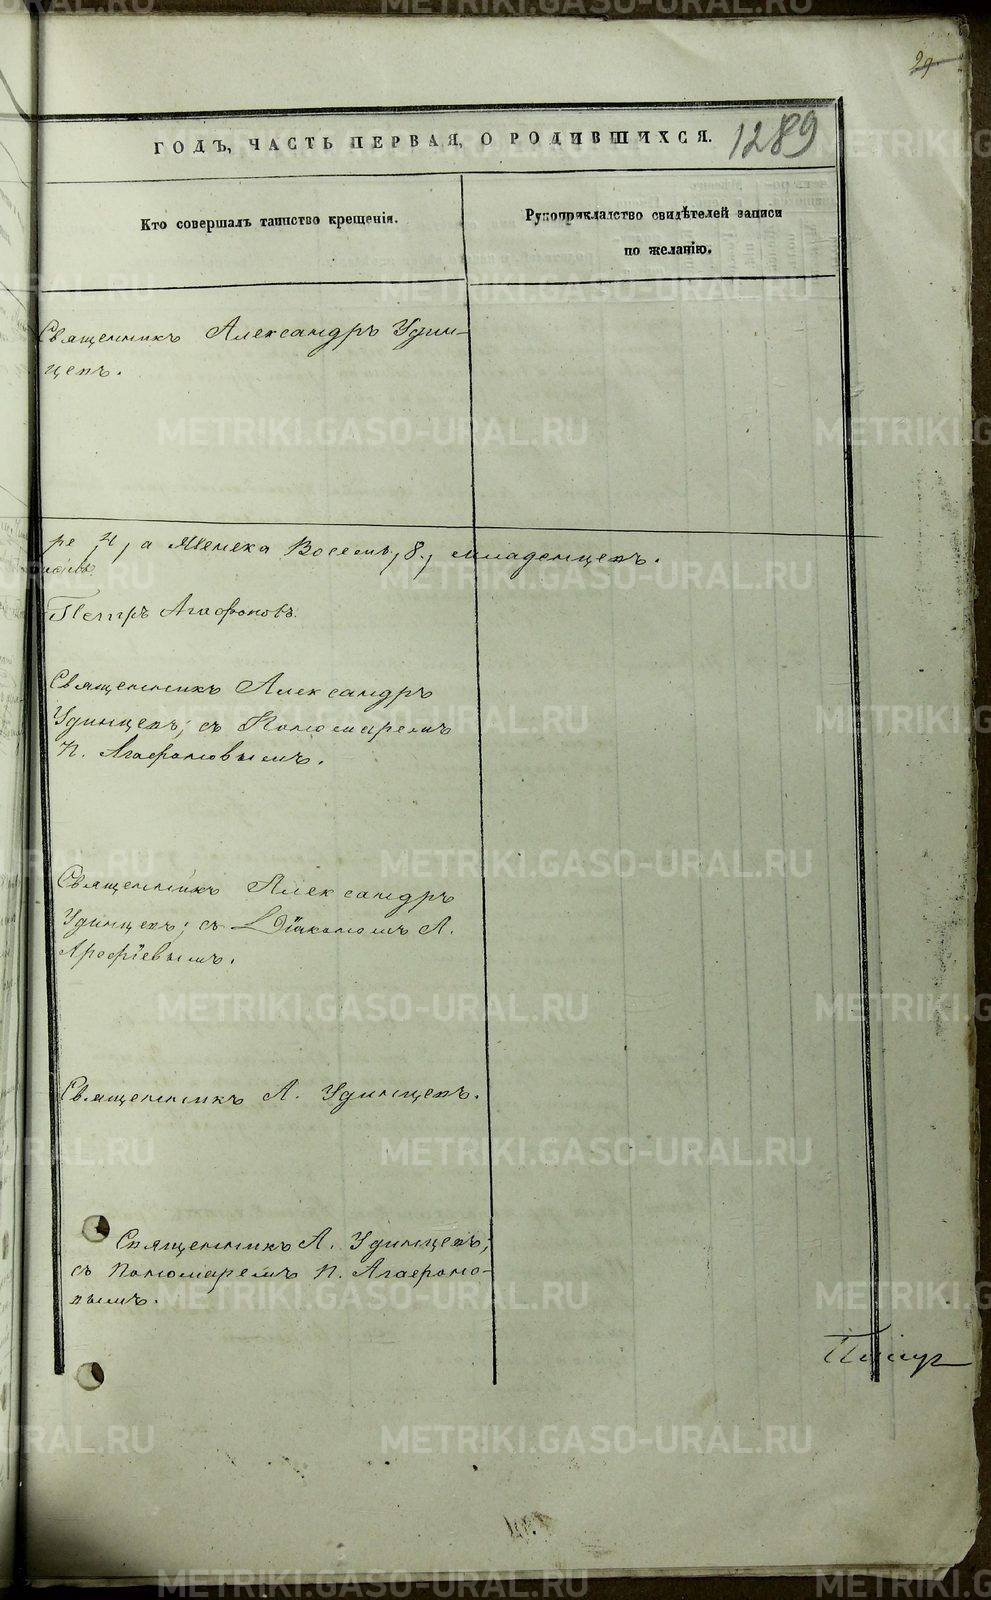 29
ГОДЪ, ЧАСТЬ ПЕРВАЯ, О РОДИВШИХСЯ. 1289
Кто совершалъ таинство крещенія.
Рукоприкладство свидѣтелей записи
по желанію.
Священникъ Александръ Удин-
цевъ.
ре, 4, а Женска Восемь, 8, младенцевъ.
Петръ Агафоновъ.
Священникъ Александръ
Удинцевъ; съ Пономаремъ
П. Агафоновымъ.
Священникъ Александръ
Удинцевъ; съ Діакономъ А.
Арефіевымъ.
Священникъ А. Удинцевъ.
Священникъ А. Удинцевъ;
съ Пономаремъ П. Агафоно-
вымъ.
METRIKI.GASO-URAL.RU